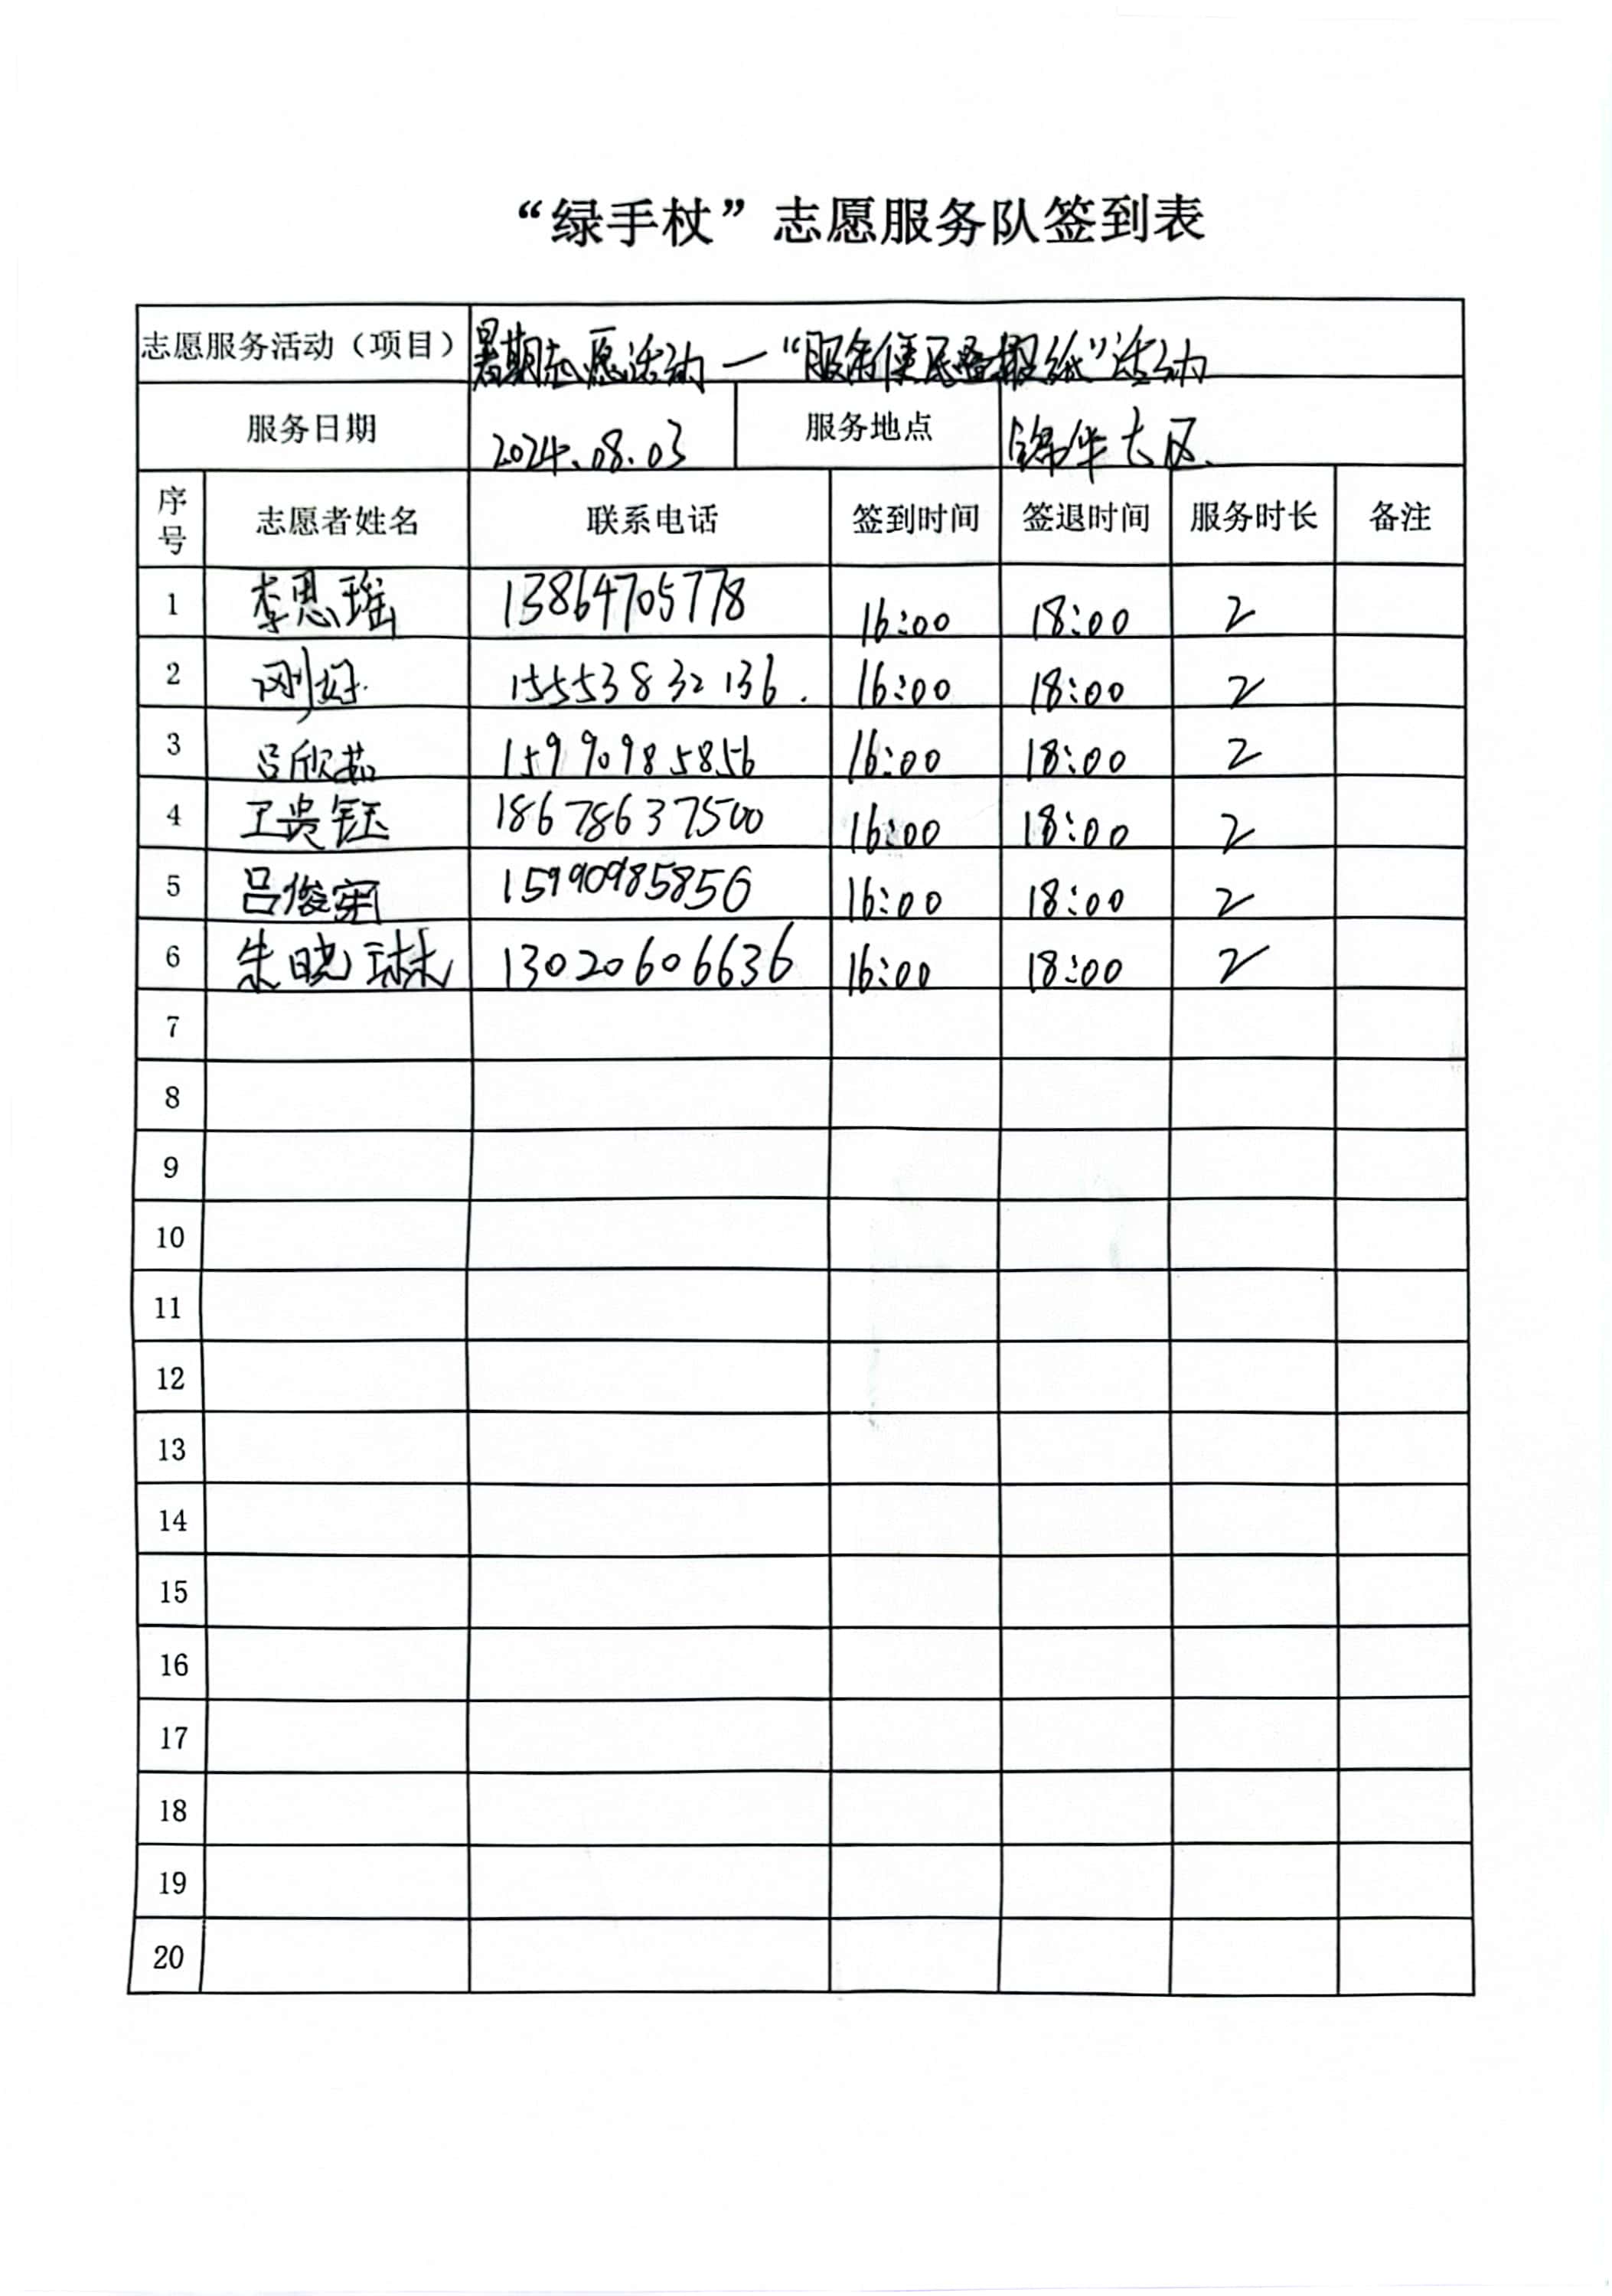 “绿手杖”志愿服务队签到表
志愿服务活动（项目） 暑期志愿活动—“服务便民叠报纸”活动
服务日期 2024.08.03 服务地点 锦华社区
序号 志愿者姓名 联系电话 签到时间 签退时间 服务时长 备注
1 李思瑶 13864705778 16:00 18:00 2
2 刚好 15553832136. 16:00 18:00 2
3 吕欣茹 15990985856 16:00 18:00 2
4 王贵钰 18678637500 16:00 18:00 2
5 吕俊 15990985856 16:00 18:00 2
6 朱晓琳 13020606636 16:00 18:00 2
7
8
9
10
11
12
13
14
15
16
17
18
19
20